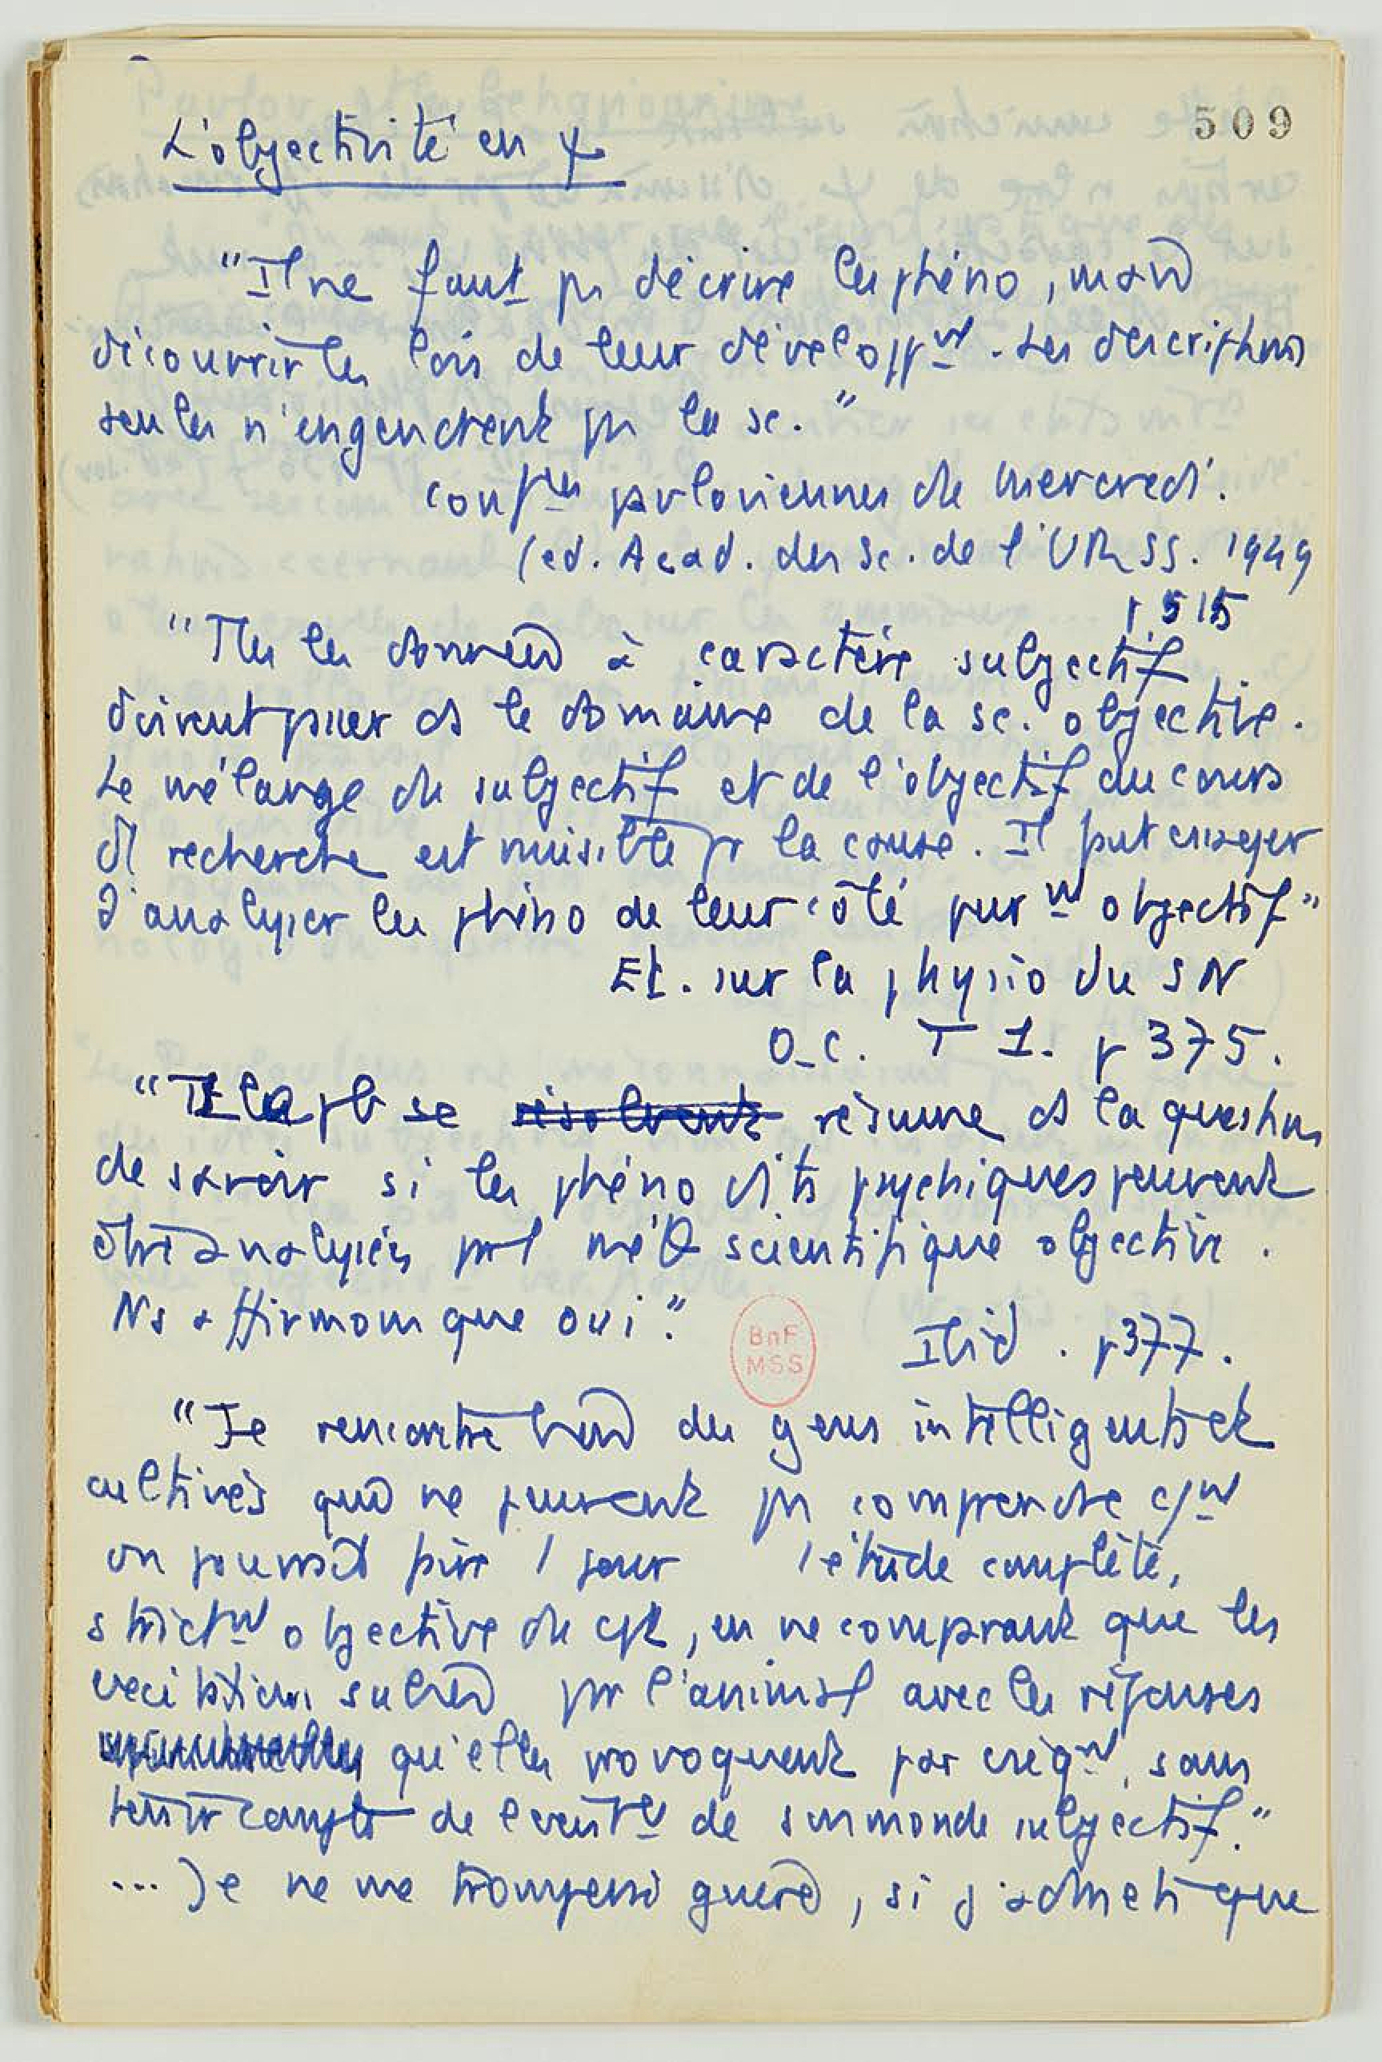 509
L'objectivité en ψ
"Il ne faut pas décrire les phéno, mais
découvrir les lois de leur développmt. Les descriptions
seules n'engendrent pas la sc."
pavloviennes du mercredi.
(ed. Acad. des Sc. de l'URSS. 1949
p 515
"Ttes les données à caractère subjectif
doivent passer ds le domaine de la sc. objective.
Le mélange du subjectif et de l'objectif au cours
d'1 recherche est nuisible pr la cause. Il faut essayer
d'analyser les phéno de leur côté purmt objectif"
Et. sur la physio du SN
O.C. T 1. p 375.
"Tt le pb se résume ds la question
de savoir si les phéno dits psychiques peuvent
être analysés par 1 méth scientifique objective.
Ns affirmons que oui."
Ibid. p 377.
BnF
MSS
"Je rencontre des gens intelligents et
cultivés qui ne peuvent pas comprendre cmt
on pourrait faire 1 jour 1 étude complète,
strictmt objective du cpt, en ne comparant que les
excitations subies par l'animal avec les réponses
qu'elles provoquent par csqmt, sans
tenir compte de de son monde subjectif."
... Je ne me trompe guère, si j'admets que